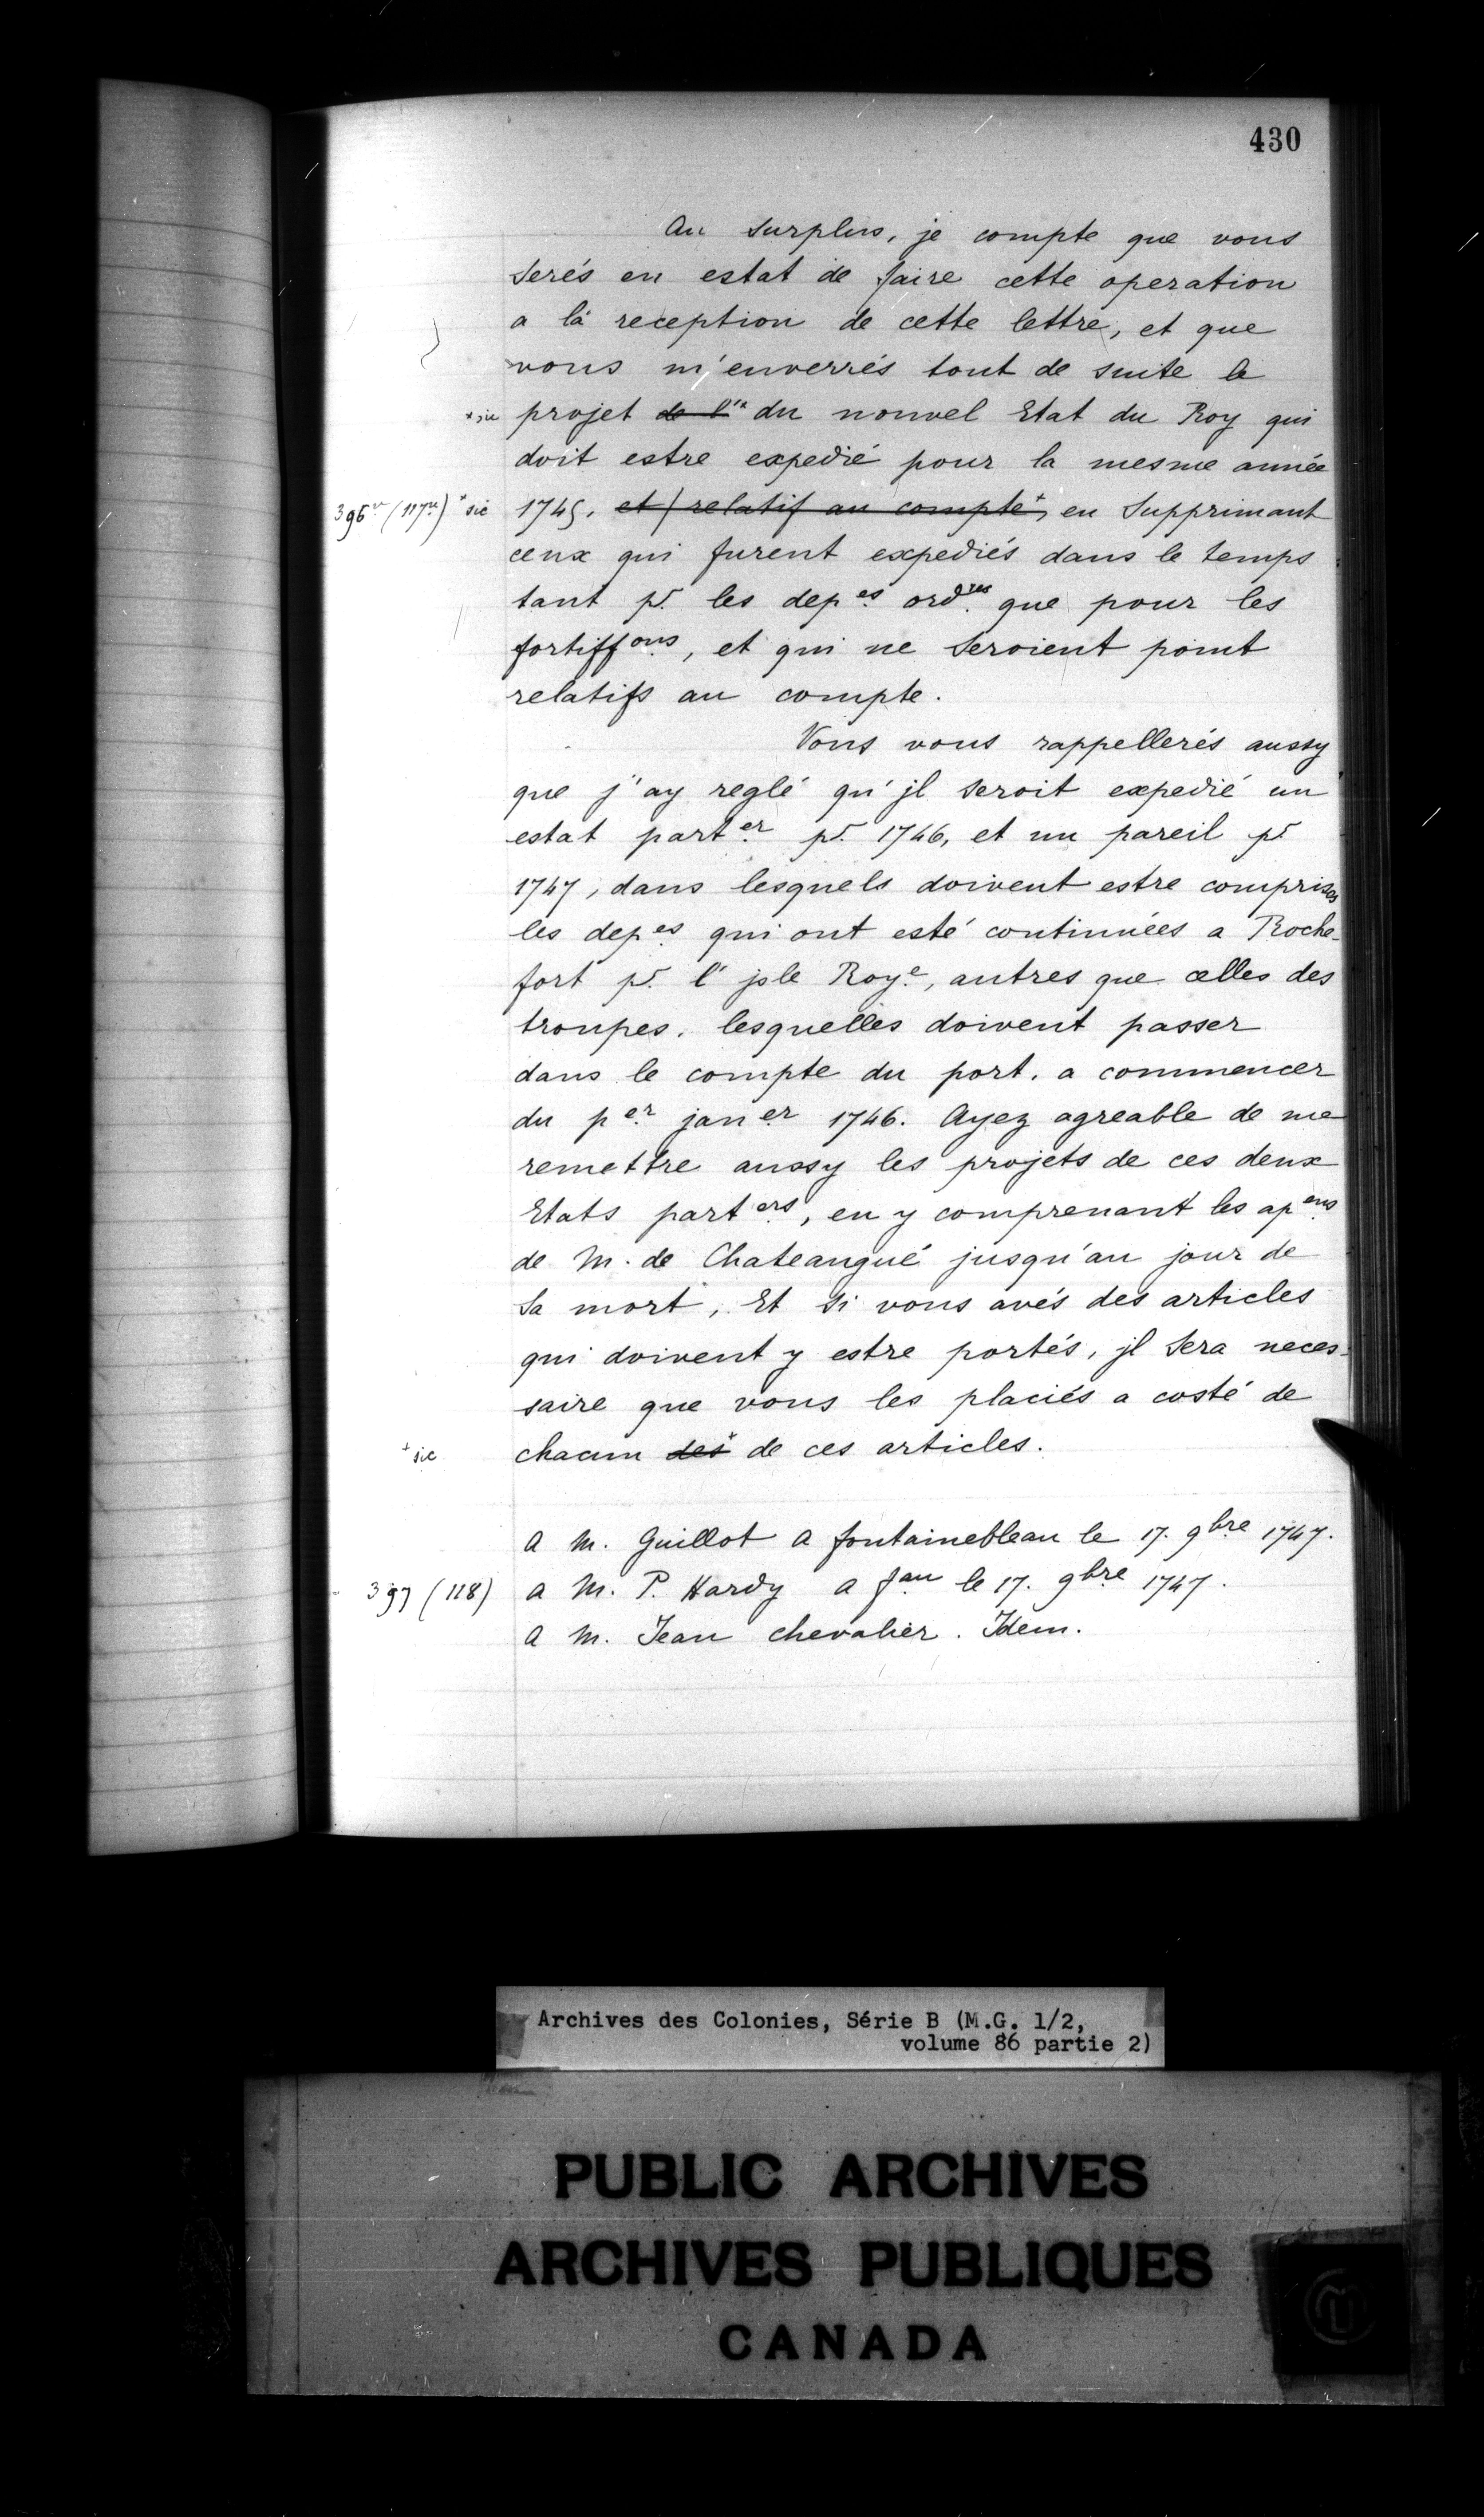 430
Au surplus, je compte que vous
serés en estat de faire cette operation
a la reception de cette lettre, et que
vous m'enverrés tout de suite le
*sic projet de l'* du nouvel Etat du Roy qui
doit estre expedié pour la mesme année
396vo (117vo) *sic 1745, et) relatif au compte+, en supprimant
ceux qui furent expediés dans le temps
tant pr. les depes ordres que pour les
fortiffons, et qui ne seroient point
relatifs au compte.
Vous vous rappellerés aussy
que j'ay reglé qu'jl seroit expedié un
estat parter pr. 1746, et un pareil pr
1747, dans lesquels doivent estre comprises
les depes qui ont esté continuées a Roche-
fort pr. l'jsle Roye, autres que celles des
troupes, lesquelles doivent passer
dans le compte du port, a commencer
du per janer 1746. Ayez agreable de me
remettre aussy les projets de ces deux
Etats parters, en y comprenant les apens
de M. de Chateaugué jusqu'au jour de
sa mort, Et si vous avés des articles
qui doivent y estre portés, jl sera neces-
saire que vous les placiés a costé de
+sic chacun des* de ces articles.
A M. Guillot a fontainebleau le 17. 9bre 1747.
397 (118) a M. P. Hardy a fau le 17. 9bre 1747.
A M. Jean chevalier. Idem.
Archives des Colonies, Série B (M.G. 1/2,
volume 86 partie 2)
PUBLIC ARCHIVES
ARCHIVES PUBLIQUES
CANADA